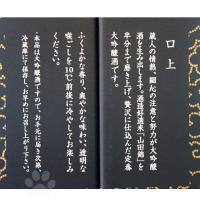 口上
蔵人の情熱、細心の注意と努力が大吟醸
酒を生み出します。酒造好適米「山田錦」を
半分まで磨き上げ、贅沢に仕込んだ定番
大吟醸酒です。
ふくよかな香り、爽やかな味わい、透明な
喉ごしを10℃前後に冷やしてお楽しみ
ください。
・本品は大吟醸酒ですので、お手元に届き次第、
冷蔵庫にて保存し、お早めにお召し上がり下さい。